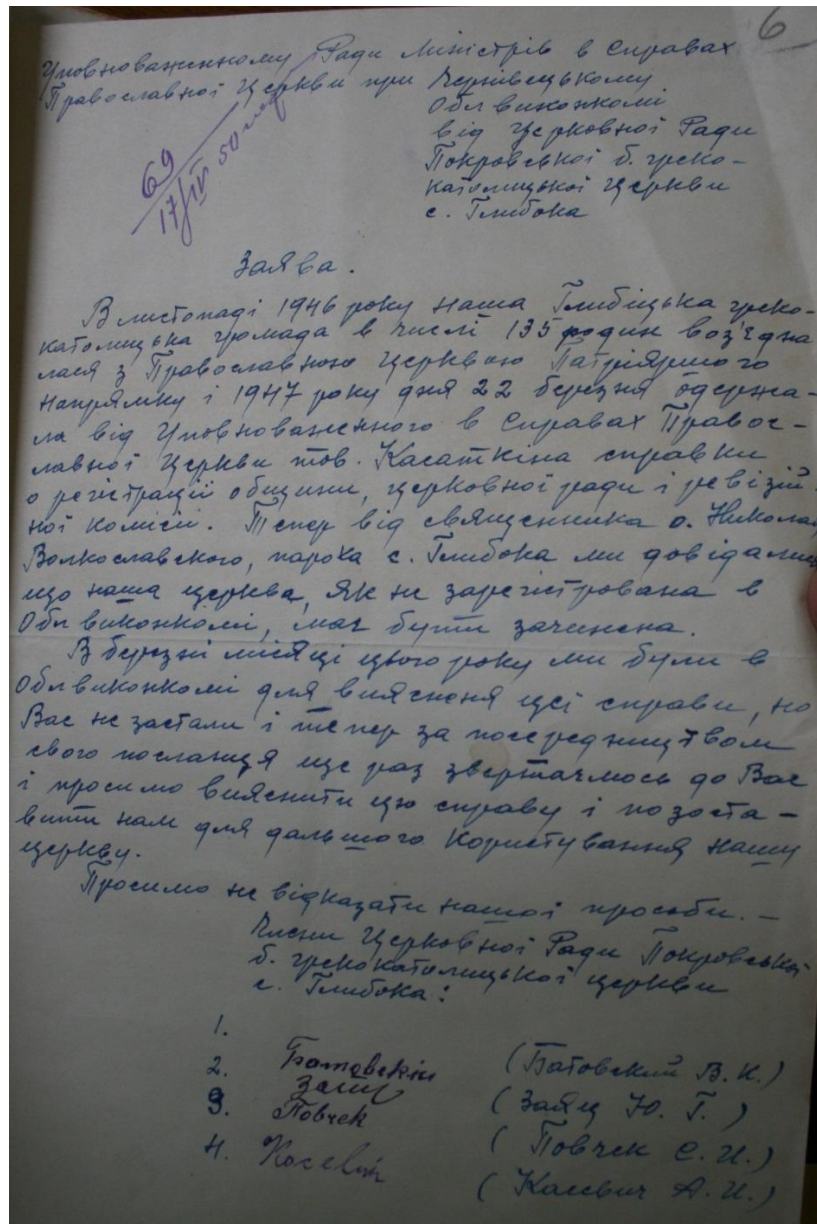 6
Уповноваженному Ради Міністрів в справах
Православної Церкви при Чернівецькому
Облвиконкомі
від Церковної Ради
Покровської б. греко-
католицької Церкви
с. Глибока
69
17/IV 50
Заява.
В листопаді 1946 року наша Глибіцька греко-
католицька громада в числі 135 родин воз'єдна
лася з Православною Церквою Патріяршого
напрямку і 1947 року дня 22 березня одержа-
ла від Уповноваженного в Справах Правос-
лавної Церкви тов. Касаткіна справки
о регістрації общини, церковної ради і ревізій-
ної комісії. Тепер від священника о. Николая
Волкославского, пароха с. Глибока ми довідались
що наша церква, як не зарегістрована в
Облвиконкомі, має бути зачинена.
В березні місяці цього року ми були в
Облвиконкомі для вияснення цеї справи, но
Вас не застали і тепер за посередництвом
свого посланця ще раз звертаємось до Вас
і просимо вияснити цю справу і позоста-
вити нам для дальшого користування нашу
церкву.
Просимо не відказати нашої просьби. -
Члени Церковної Ради Покровської
б. грекокатолицької церкви
с. Глибока:
1. Батовский (Батовский В. К.)
2. Заяц (Заяц Ю. Г.)
3. Повчек (Повчек С. И.)
4. Касевич (Касевич А. И.)